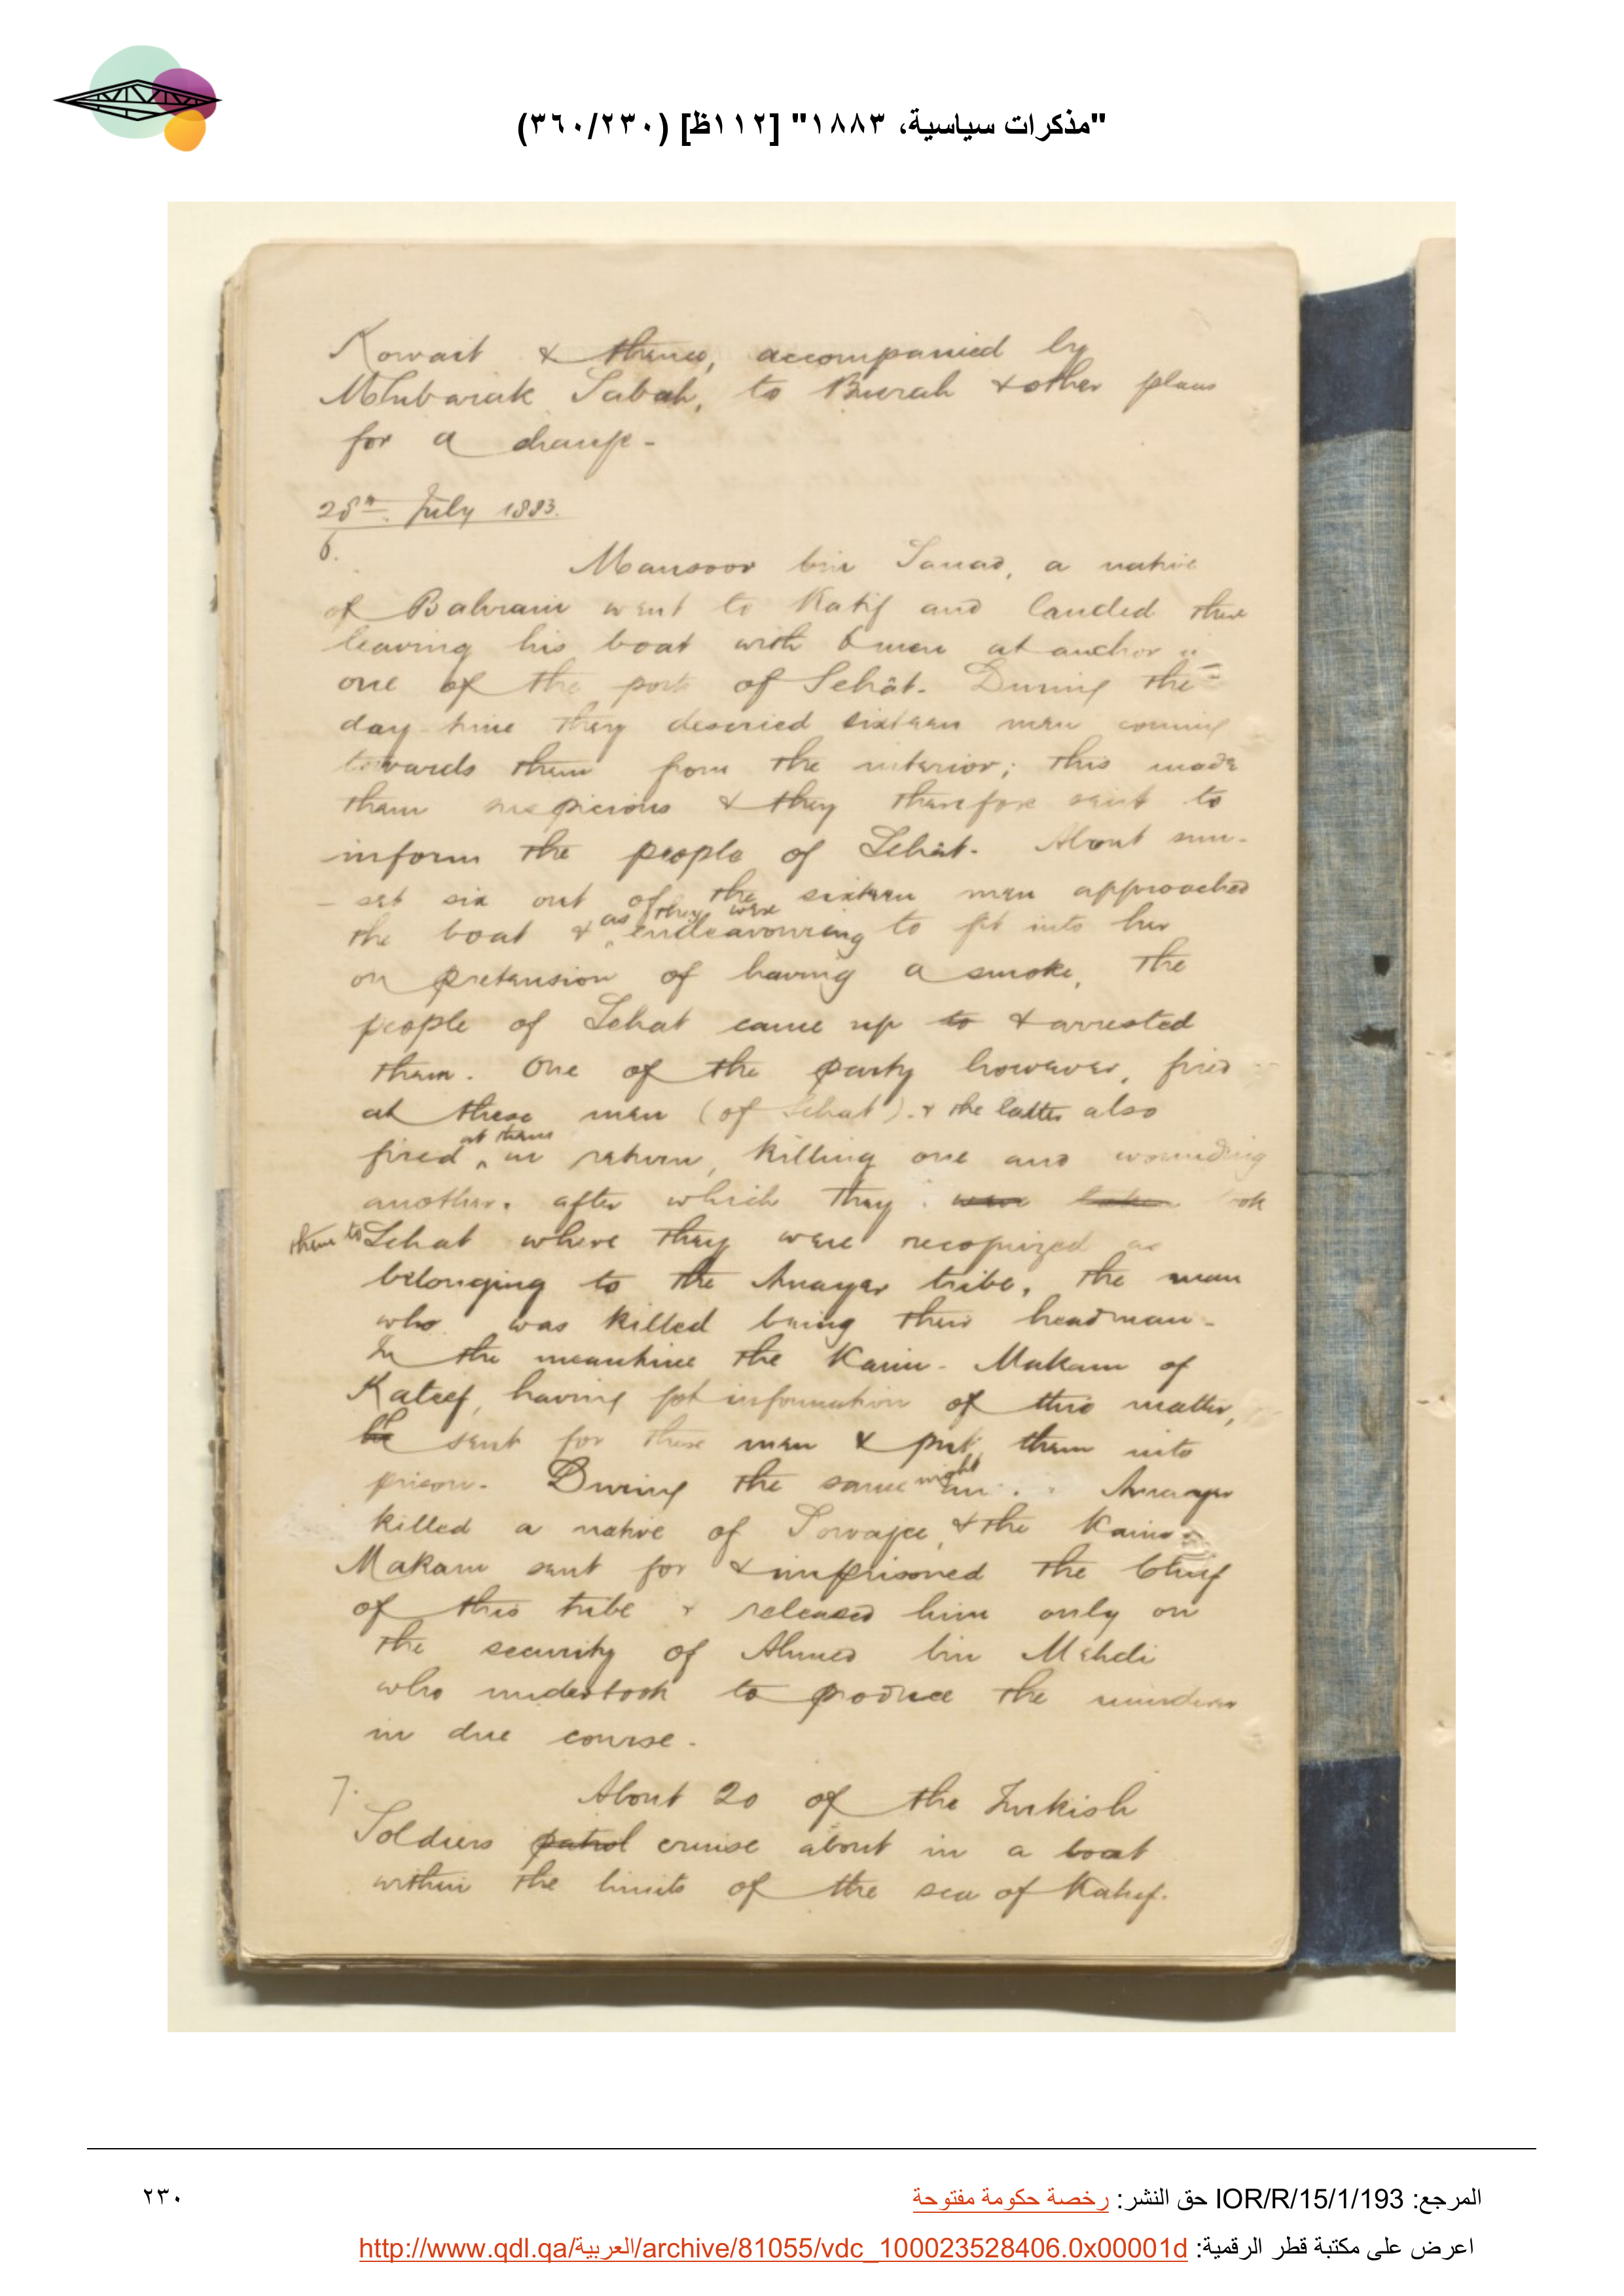 "مذكرات سياسية، ١٨٨٣" [١١٢ظ] (٣٦٠/٢٣٠)
Kowait & thence, accompanied by
Mubarak Sabah, to Busrah & other places
for a change -
28th. July 1883.
6.
Mansoor bin Sanad, a native
of Bahrain went to Katif and landed there
leaving his boat with 6 men at anchor in
one of the ports of Sehât. During the
day-time they descried sixteen men coming
towards them from the interior; this made
them suspicious & they therefore sent to
inform the people of Sehât. About sun-
- set six out of the sixteen men approached
the boat & as they were endeavouring to get into her
on pretension of having a smoke, the
people of Sehat came up to & arrested
them. One of the party however, fired
at these men (of Sehat). & the latter also
fired at them in return, killing one and wounding
another. after which they were taken took
them to Sehat where they were recognized as
belonging to the Amayer tribe, the man
who was killed being their headman -
In the meantime the Kaim-Makam of
Kateef, having got information of this matter,
he sent for these men & put them into
prison. During the same night Amayer
killed a native of Sowajee, & the Kaim-
Makam sent for & imprisoned the Chief
of this tribe & released him only on
the security of Ahmed bin Mehdi
who undertook to produce the murderer
in due course.
7.
About 20 of the Turkish
Soldiers patrol cruise about in a boat
within the limits of the sea of Katif.
المرجع: IOR/R/15/1/193 حق النشر: رخصة حكومة مفتوحة
٢٣٠
اعرض على مكتبة قطر الرقمية: http://www.qdl.qa/العربية/archive/81055/vdc_100023528406.0x00001d